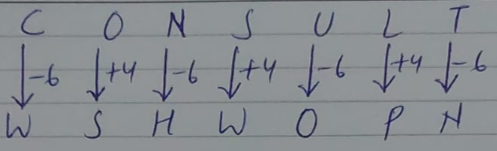 C O N S U L T
-6 +4 -6 +4 -6 +4 -6
W S H W O P N